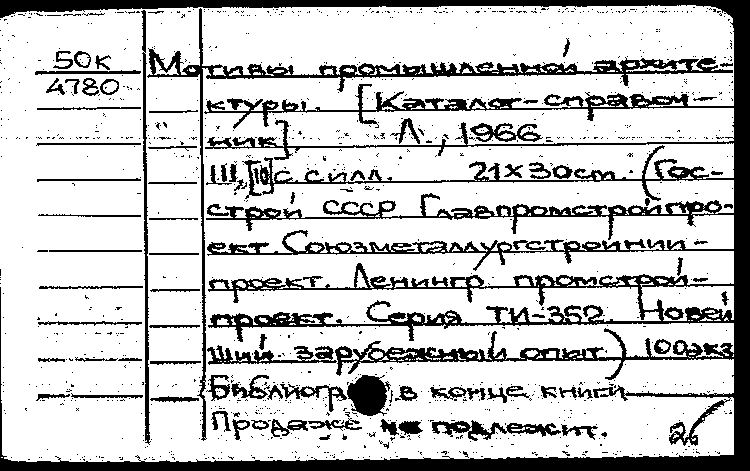 50к Мотивы промышленной архите-
4780 ктуры. [Каталог-справоч-
ник]. Л., 1966.
с илл. 21×30cm. (Гос-
строй СССР Главпромстройпро-
ект. Союзметаллургстройнии-
проект. Ленингр промстрой-
проект. Серия ТИ-352 Новей
ший зарубежный опыт) 100экз
Библиогр в конце книги
Продаже не подлежит.